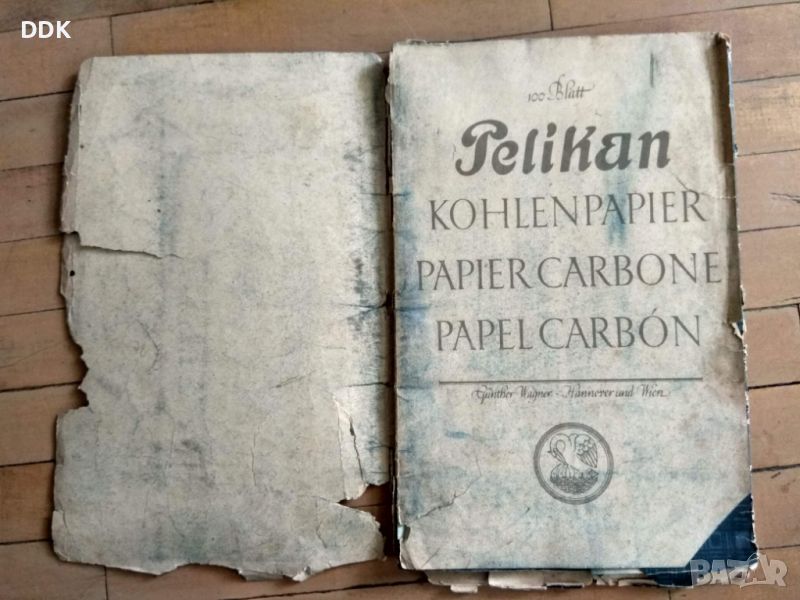 DDK
100 Blatt
Pelikan
KOHLENPAPIER
PAPIER CARBONE
PAPEL CARBÓN
Günther Wagner · Hannover und Wien
BAZAR